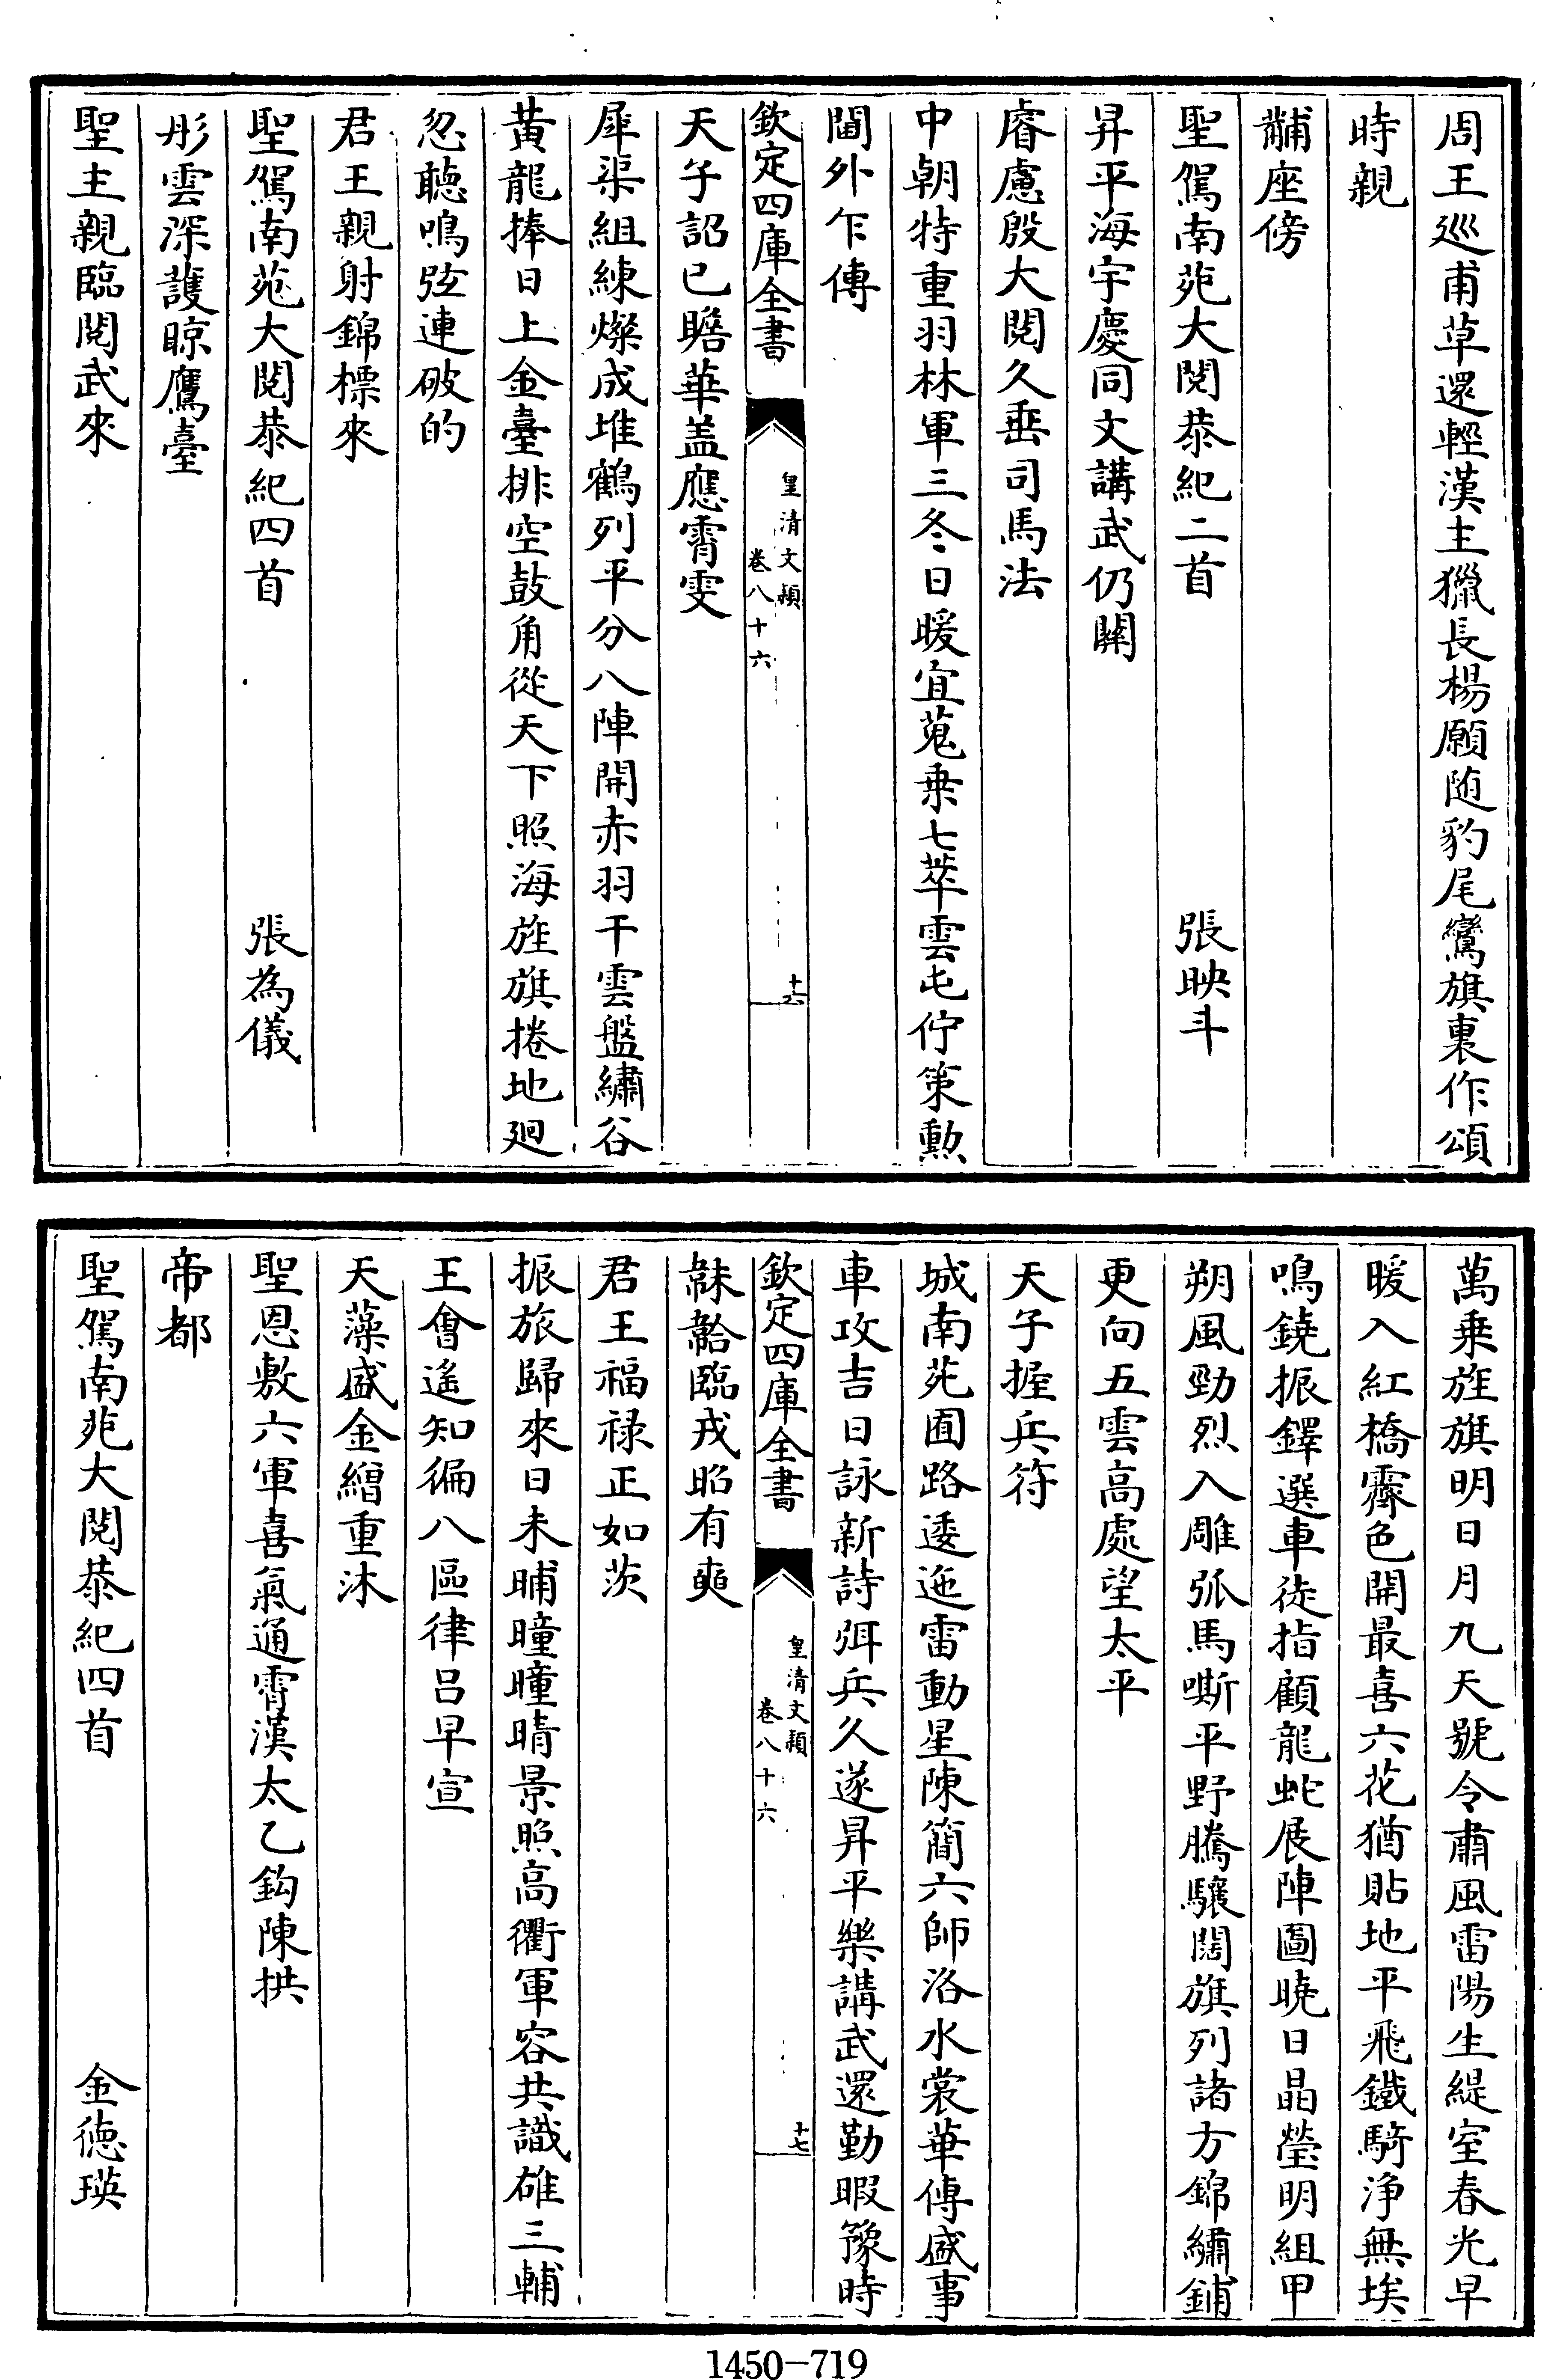 周王巡甫草還輕漢主獵長楊願随豹尾鸞旗裏作頌
時親
黼座傍
聖駕南苑大閱恭紀二首　張映斗
昇平海宇慶同文講武仍關
睿慮殷大閱久垂司馬法
中朝特重羽林軍三冬日暖宜蒐乗七萃雲屯佇策勲
閫外乍傳
欽定四庫全書　皇清文穎　卷八十六　十六
天子詔已瞻華盖應霄雯
犀渠組練燦成堆鶴列平分八陣開赤羽干雲盤繡谷
黄龍捧日上金臺排空鼓角從天下照海旌旗捲地廻
忽聴鳴弦連破的
君王親射錦標來
聖駕南苑大閱恭紀四首　張為儀
彤雲深護晾鷹臺
聖主親臨閱武來
萬乗旌旗明日月九天號令肅風雷陽生緹室春光早
暖入紅橋霽色開最喜六花猶貼地平飛鐵騎淨無埃
鳴鐃振鐸選車徒指顧龍蛇展陣圖曉日晶瑩明組甲
朔風勁烈入雕弧馬嘶平野騰驤闊旗列諸方錦繡鋪
更向五雲高處望太平
天子握兵符
城南苑囿路逶迤雷動星陳簡六師洛水裳華傳盛事
車攻吉日詠新詩弭兵久遂昇平樂講武還勤暇豫時
欽定四庫全書　皇清文穎　卷八十六　十七
韎韐臨戎昭有奭
君王福禄正如茨
振旅歸來日未晡曈曈晴景照高衢軍容共識雄三輔
王會遙知徧八區律吕早宣
天藻盛金繒重沐
聖恩敷六軍喜氣通霄漢太乙鈎陳拱
帝都
聖駕南苑大閱恭紀四首　金徳瑛
1450-719